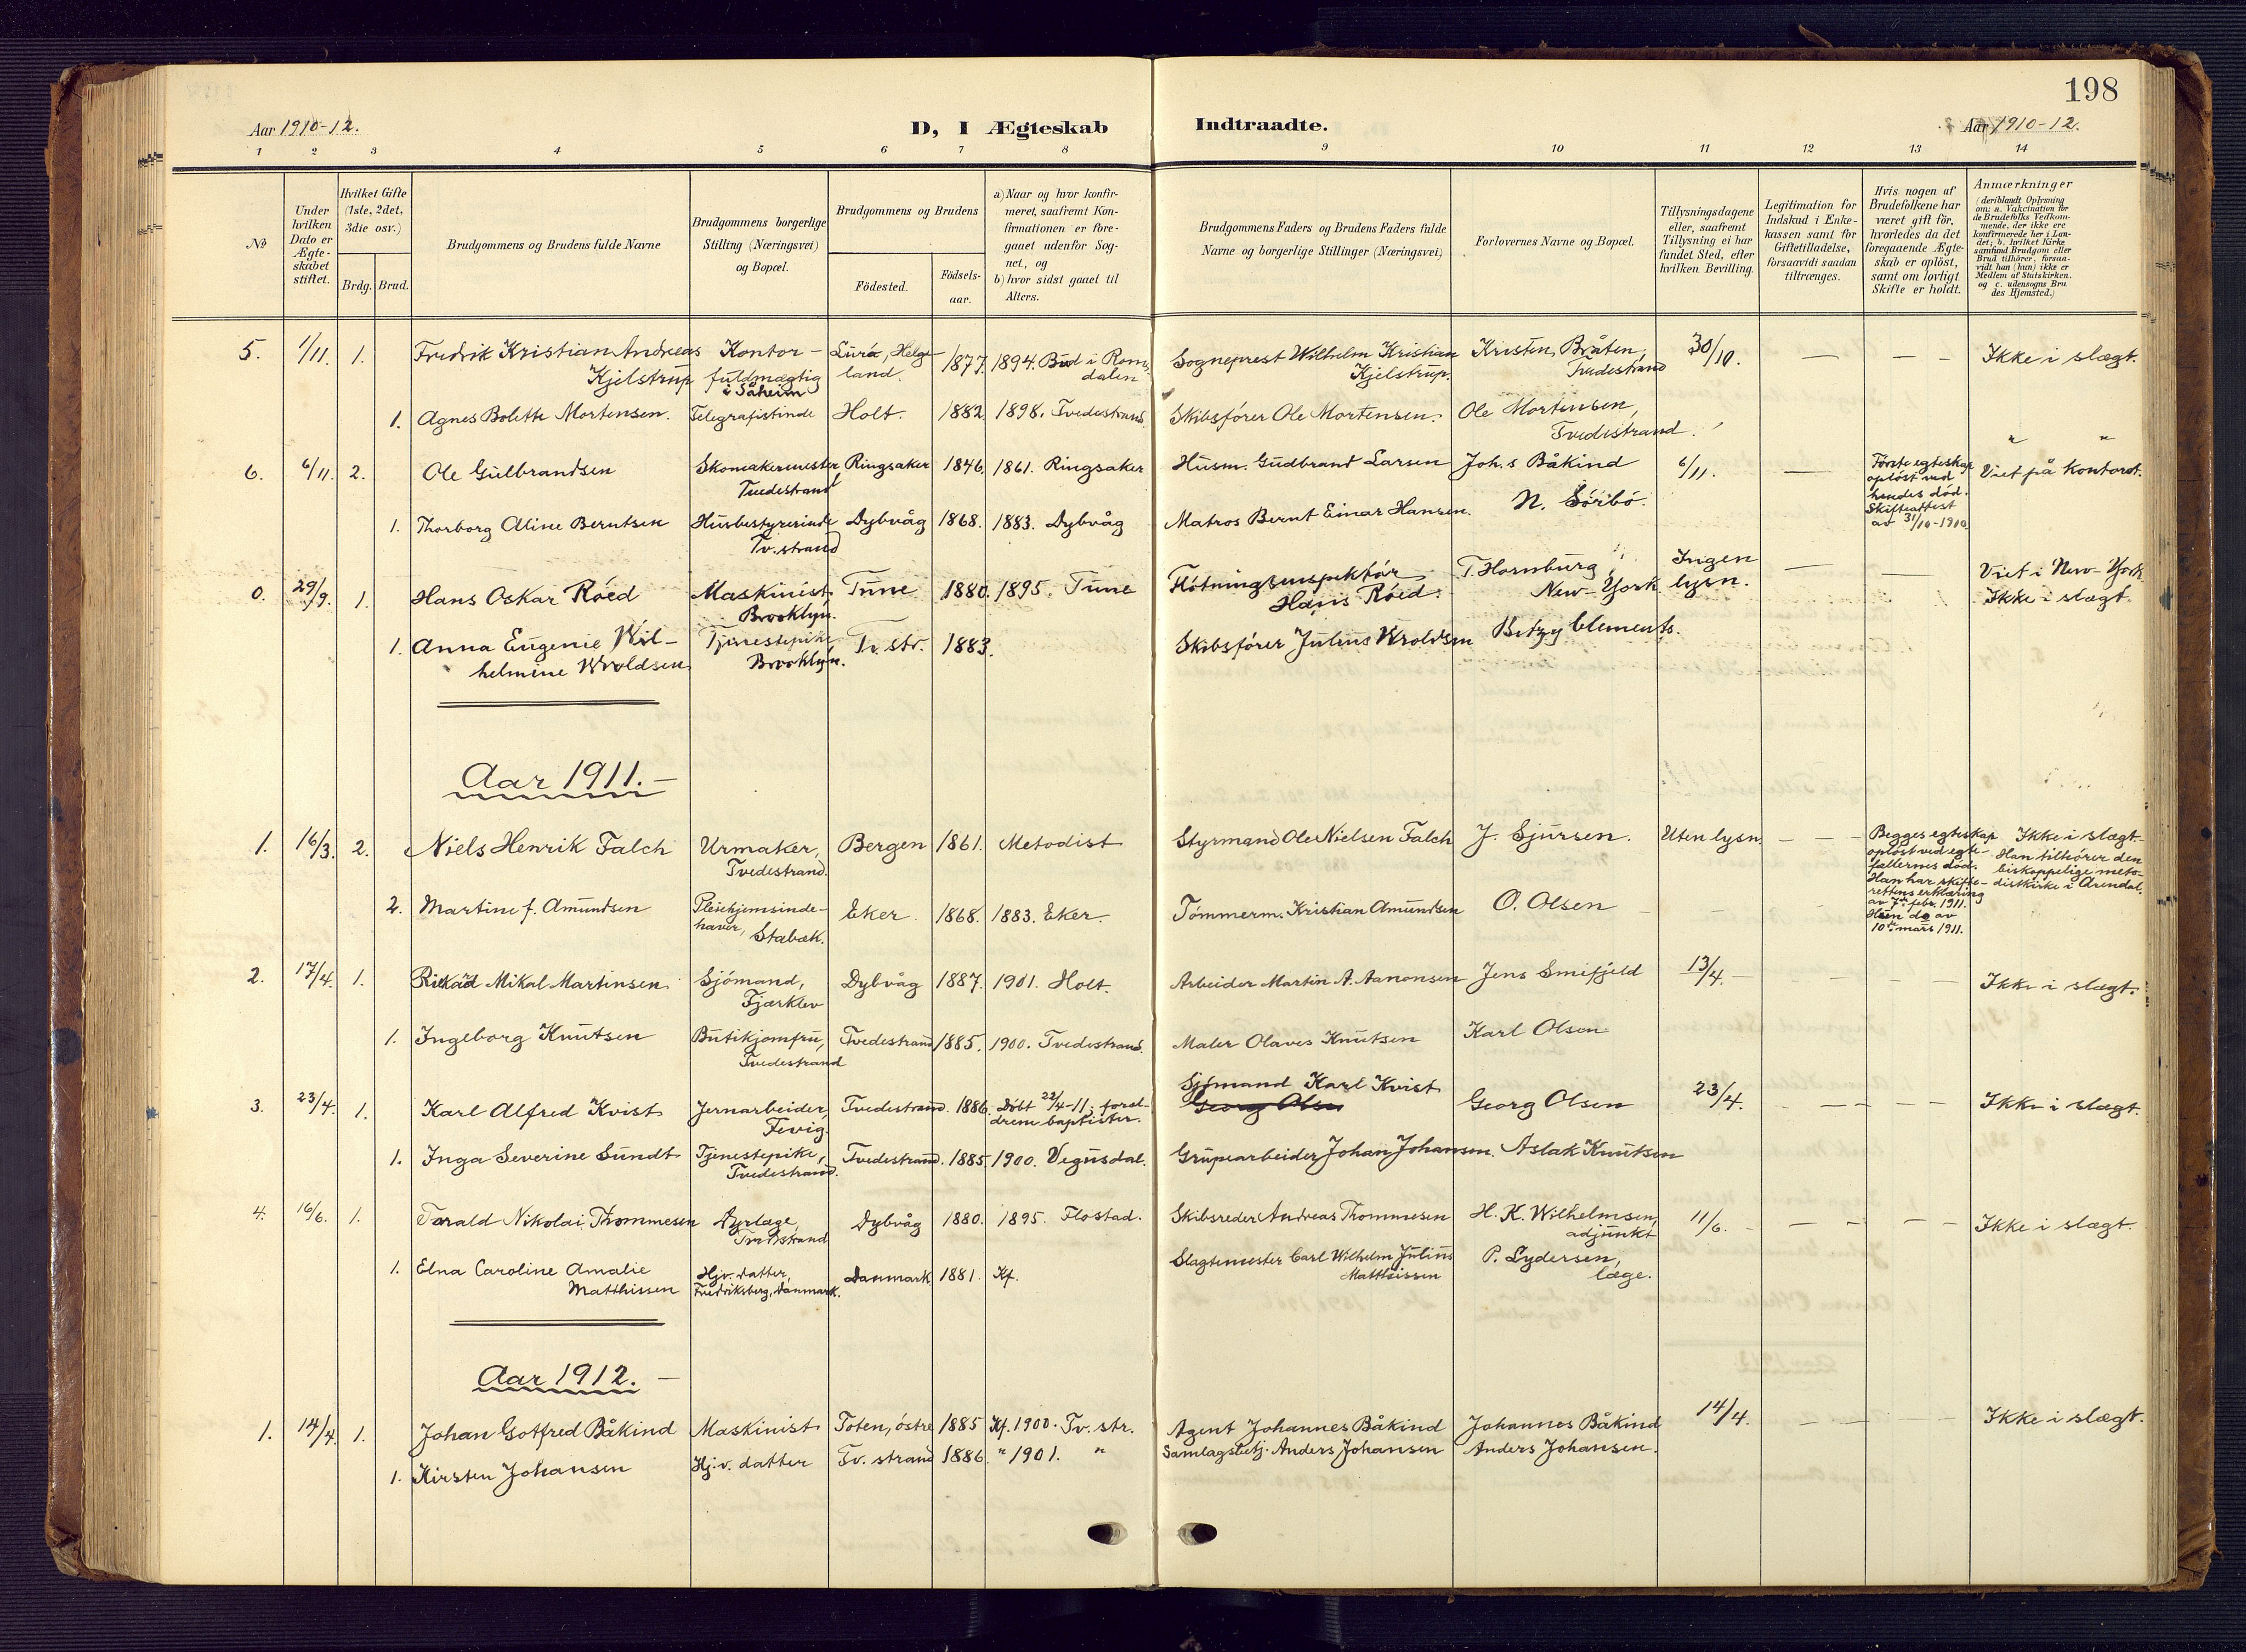 198
Aar 1910-12.
D, I Ægteskab
Indtraadte.
Aar 1910-12.
1 2 3 4 5 6 7 8 9 10 11 12 13 14
No
Under
hvilken
Dato er
Ægte-
skabet
stiftet.
Hvilket Gifte
(1ste, 2det,
3die osv.)
Brdg. Brud.
Brudgommens og Brudens fulde Navne
Brudgommens borgerlige
Stilling (Næringsvei)
og Bopæl.
Brudgommens og Brudens
Födested.
Födsels-
aar.
a) Naar og hvor konfir-
meret, saafremt Kon-
firmationen er fore-
gaaet udenfor Sog-
net, og
b) hvor sidst gaaet til
Alters.
Brudgommens Faders og Brudens Faders fulde
Navne og borgerlige Stillinger (Næringsvei)
Forlovernes Navne og Bopæl.
Tillysningsdagene
eller, saafremt
Tillysning ei har
fundet Sted, efter
hvilken Bevilling.
Legitimation for
Indskud i Enke-
kassen samt for
Giftetilladelse,
forsaavidt saadan
tiltrænges.
Hvis nogen af
Brudefolkene har
været gift för,
hvorledes da det
foregaaende Ægte-
skab er oplöst,
samt om lovligt
Skifte er holdt.
Anmærkninger
(deriblandt Oplysning
om: a. Vakcination for
de Brudefolks Vedkom-
mende, der ikke ere
konfirmerede her i Lan-
det; b. hvilket Kirke
samfund Brudgom eller
Brud tilhörer, forsaa-
vidt han (hun) ikke er
Medlem af Statskirken,
og c. udensogns Bru
des Hjemsted.)
5. 1/11. 1. Fredrik Kristian Andreas Kontor- Lurö, Helge- 1877. 1894. Bud i Roms- Sogneprest Wilhelm Kristian Kristen Bråten, 30/10. — — — Ikke i slægt.
Kjelstrup fuldmægtig land. dalen Kjelstrup. Tvedestrand
i Såheim
1. Agnes Bolette Mortensen. Telegrafistinde Holt. 1882. 1898. Tvedestrand. Skibsförer Ole Mortensen. Ole Mortensen,
Tvedestrand.
" "
6. 6/11. 2. Ole Gulbrandsen Skomakermester Ringsaker 1846. 1861. Ringsaker Husm. Gudbrand Larsen Joh.s Båkind 6/11. — Förste egteskap Viet på kontoret.
Tvedestrand oplöst ved
hendes död.
Skifteattest
av 31/10-1910
1. Thorborg Aline Berntsen Husbestyrerinde Dybvåg 1868. 1883. Dybvåg Matros Bernt Einar Hansen. N. Söribö.
Tv.strand
0. 29/9. 1. Hans Oskar Röed Maskinist Tune 1880. 1895. Tune Flötningsinspektör T. Hornburg, Ingen — — Viet i New-York
Brooklyn. Hans Röed. New-York lysn. Ikke i slægt.
1. Anna Eugenie Wil- Tjenestepike Tv. str. 1883. Skibsförer Julius Wroldsen Betzy Clements.
helmine Wroldsen Brooklyn.
Aar 1911.—
1. 16/3. 2. Niels Henrik Falch Urmaker, Bergen 1861. Metodist Styrmand Ole Nielsen Falch J. Sjursen. Uten lysn. — — Begges egteskap Ikke i slægt.
Tvedestrand. oplöst ved egte- Han tilhörer den
fællernes död. biskoppelige meto-
Han har skifte- distkirke i Arendal.
rettens erklæring
av 7de febr. 1911.
Hun do av
10de mars 1911.
2. Martine f. Amundsen Pleiehjemsinde- Eker. 1868. 1883. Eker. Tömmerm. Kristian Amundsen O. Olsen
haver, Stabæk.
2. 17/4. 1. Rikad Mikal Martinsen Sjömand, Dybvåg 1887. 1901. Holt. Arbeider Martin A. Aanonsen Jens Smifjeld 13/4. — — — Ikke i slægt.
Fjærklev
1. Ingeborg Knutsen Butikjomfru, Tvedestrand 1885. 1900. Tvedestrand. Maler Olaves Knutsen Karl Olsen
Tvedestrand
3. 23/4. 1. Karl Alfred Kvist Jernarbeider, Tvedestrand. 1886. Döbt 22/4-11; foræl- Sjömand Karl Kvist Georg Olsen 23/4. — — — Ikke i slægt.
Fevig. drene baptister. Georg Olsen
1. Inga Severine Sundt Tjenestepike, Tvedestrand. 1885. 1900. Vegusdal. Grupearbeider Johan Johansen. Aslak Knutsen
Tvedestrand.
4. 16/6. 1. Tarald Nikolai Thommesen Dyrlæge, Dybvåg 1880. 1895. Flostad. Skibsreder Andreas Thommesen H. K. Wilhelmsen, 11/6. — — — Ikke i slægt.
Tvedestrand adjunkt
1. Elna Caroline Amalie Hjv. datter, Danmark 1881. Kf. Slagtemester Carl Wilhelm Julius P. Lydersen,
Matthissen Fredriksberg, Danmark. Matthissen læge.
Aar 1912.—
1. 14/4. 1. Johan Gotfred Båkind Maskinist Toten, östre 1885 Kf. 1900. Tv. str. Agent Johannes Båkind Johannes Båkind 14/4. — — — Ikke i slægt.
1. Kirsten Johansen Hj.v. datter Tv. strand 1886. " 1901. " Samlagsbetj. Anders Johansen Anders Johansen.